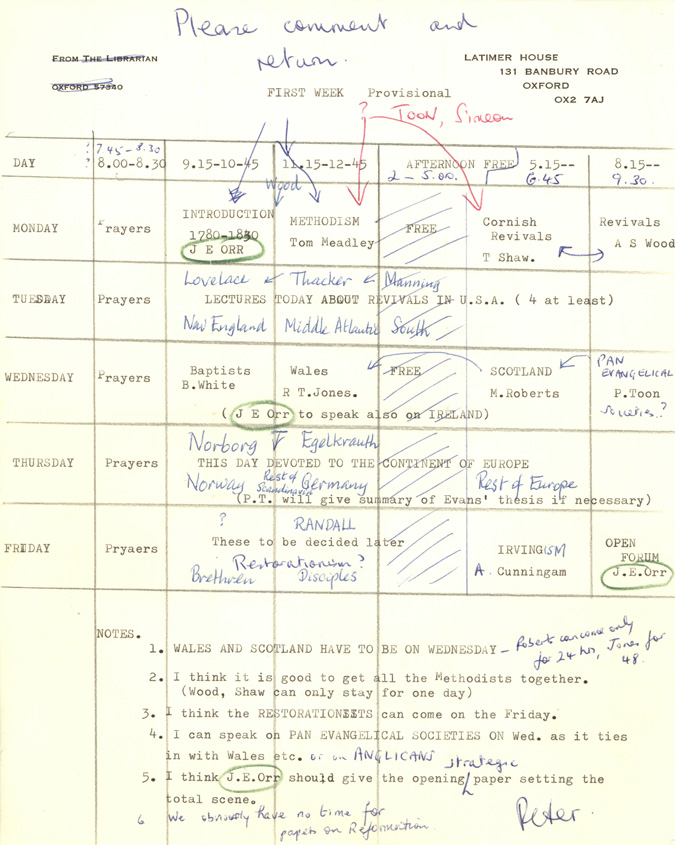 Please comment and
return.
FROM THE LIBRARIAN
OXFORD 57340
LATIMER HOUSE
131 BANBURY ROAD
OXFORD
OX2 7AJ
FIRST WEEK Provisional
? TOON, Simeon
DAY ? 7.45-8.30 ? 8.00-8.30 9.15-10-45 11.15-12-45 AFTERNOON FREE 5.15-- 8.15--
2-5.00. 6.45 9.30.
Wood
MONDAY Prayers INTRODUCTION METHODISM FREE Cornish Revivals
1780-1830 Tom Meadley Revivals A S Wood
J E ORR T Shaw.
Lovelace Thacker Manning
TUESDAY Prayers LECTURES TODAY ABOUT REVIVALS IN U.S.A. ( 4 at least)
New England Middle Atlantic South
WEDNESDAY Prayers Baptists Wales FREE SCOTLAND PAN EVANGELICAL
B.White R T.Jones. M.Roberts P.Toon
( J E Orr to speak also on IRELAND) Societies.?
Norborg Egelkrauth
THURSDAY Prayers THIS DAY DEVOTED TO THE CONTINENT OF EUROPE
Norway Rest of Scandinavia Germany Rest of Europe
(P.T. will give summary of Evans' thesis if necessary)
? RANDALL
FRIDAY Pryaers These to be decided later IRVINGISM OPEN FORUM
Restorationism? A. Cunningam J.E.Orr
Brethren Disciples
NOTES.
1. WALES AND SCOTLAND HAVE TO BE ON WEDNESDAY - Roberts can come only
for 24 hrs, Jones for
48.
2. I think it is good to get all the Methodists together.
(Wood, Shaw can only stay for one day)
3. I think the RESTORATIONISTS can come on the Friday.
4. I can speak on PAN EVANGELICAL SOCIETIES ON Wed. as it ties
in with Wales etc. or on ANGLICANS
5. I think J.E.Orr should give the opening strategic paper setting the
total scene.
6 We obviously have no time for
papers on Reformation.
Peter.